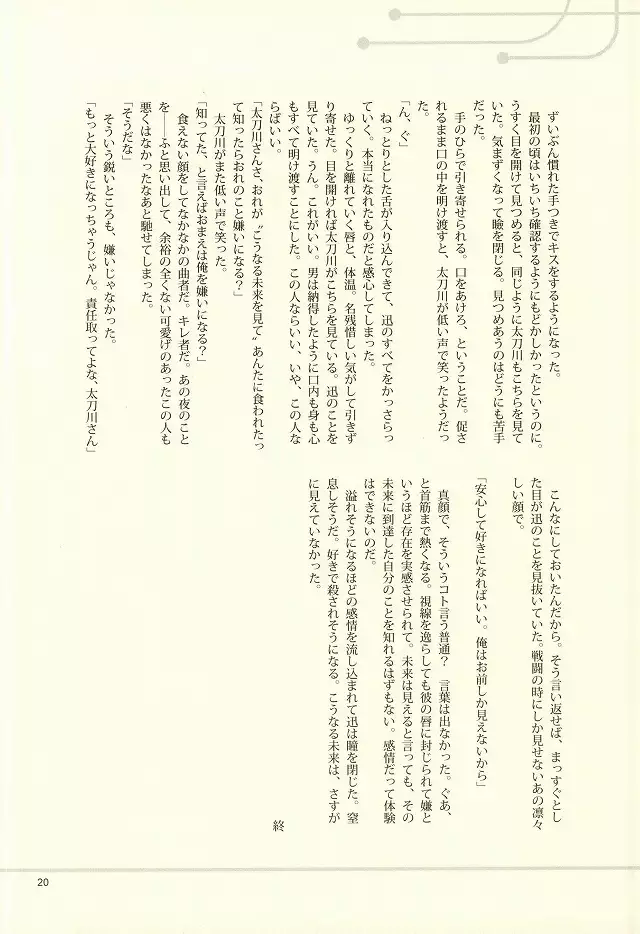 ずいぶん慣れた手つきでキスをするようになった。
最初の頃はいちいち確認するようにもどかしかったというのに。
うすく目を開けて見つめると、同じように太刀川もこちらを見て
いた。気まずくなって瞼を閉じる。見つめあうのはどうにも苦手
だった。
手のひらで引き寄せられる。口をあけろ、ということだ。促さ
れるまま口の中を明け渡すと、太刀川が低い声で笑ったようだっ
た。
「ん、ぐ」
ねっとりとした舌が入り込んできて、迅のすべてをかっさらっ
ていく。本当になれたものだと感心してしまった。
ゆっくりと離れていく唇と、体温。名残惜しい気がして引きず
り寄せた。目を開ければ太刀川がこちらを見ている。迅のことを
見ていた。うん。これがいい。男は納得したように口内も身も心
もすべて明け渡すことにした。この人ならいい、いや、この人な
らばいい。
「太刀川さんさ、おれが〝こうなる未来を見て〟あんたに食われたっ
て知ったらおれのこと嫌いになる?」
太刀川がまた低い声で笑った。
「知ってた、と言えばおまえは俺を嫌いになる?」
食えない顔をしてなかなかの曲者だ。キレ者だ。あの夜のこと
を――ふと思い出して、余裕の全くない可愛げのあったこの人も
悪くはなかったなあと馳せてしまった。
「そうだな」
そういう鋭いところも、嫌いじゃなかった。
「もっと大好きになっちゃうじゃん。責任取ってよな、太刀川さん」
こんなにしておいたんだから。そう言い返せば、まっすぐとし
た目が迅のことを見抜いていた。戦闘の時にしか見せないあの凛々
しい顔で。
「安心して好きになればいい。俺はお前しか見えないから」
真顔で、そういうコト言う普通?　言葉は出なかった。ぐあ、
と首筋まで熱くなる。視線を逸らしても彼の唇に封じられて嫌と
いうほど存在を実感させられて。未来は見えると言っても、その
未来に到達した自分のことを知れるはずもない。感情だって体験
はできないのだ。
溢れそうになるほどの感情を流し込まれて迅は瞳を閉じた。窒
息しそうだ。好きで殺されそうになる。こうなる未来は、さすが
に見えていなかった。
終
20